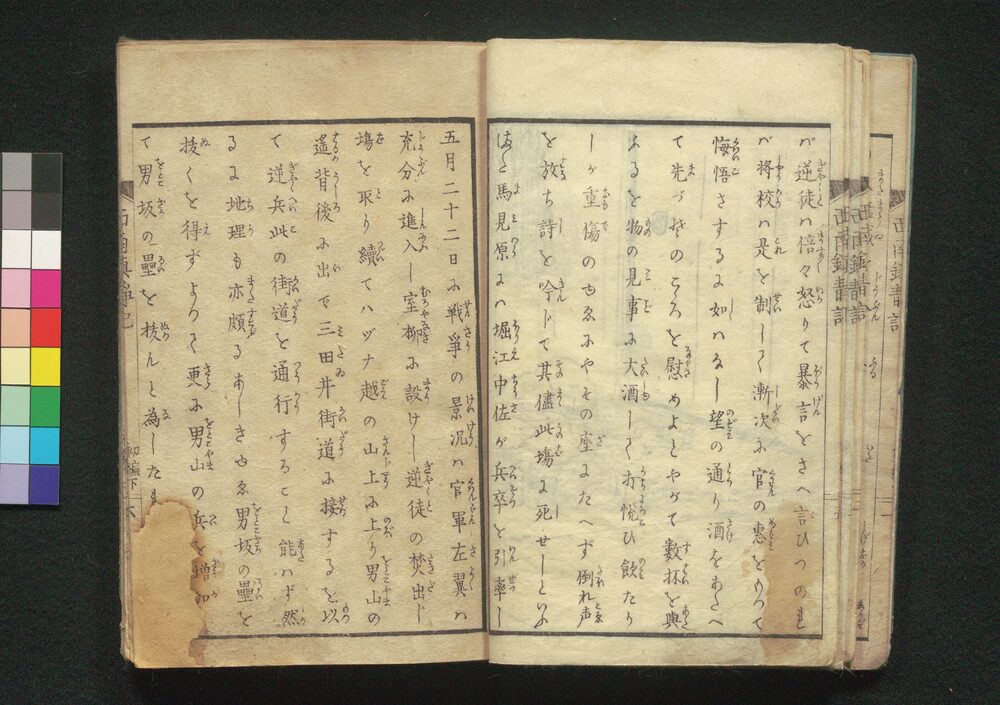 が逆徒は倍々怒りて暴言をさへ言ひつのれ
が将校ハ是を制して漸次に官の恵をもつて
悔悟さするに如ハなし望の通り酒をあたへ
て先づ其のこゝろを慰めよとやがて数杯を與
ふるを物の見事に大酒してお悦ひ飲たり
しが重傷のゆゑにやその座にたへず倒れ声
を放ち詩を吟じて其儘此場に死せしといふ
また馬見原にハ堀江中佐が兵卒を引率し
五月二十二日に戦争の景况ハ官軍左翼ハ
充分に進入し室柳に設けし逆徒の焚出し
場を取り續てハヅナ越の山上に上り男山の
遥背後に出で三田井街道に接するを以
て逆兵此の街道を通行すること能ハず然
るに地理も亦頗るあしきゆゑ男坂の壘を
抜くを得ずよりて更に男山の兵を増加
て男坂の壘を抜んと為したり
初編下
六